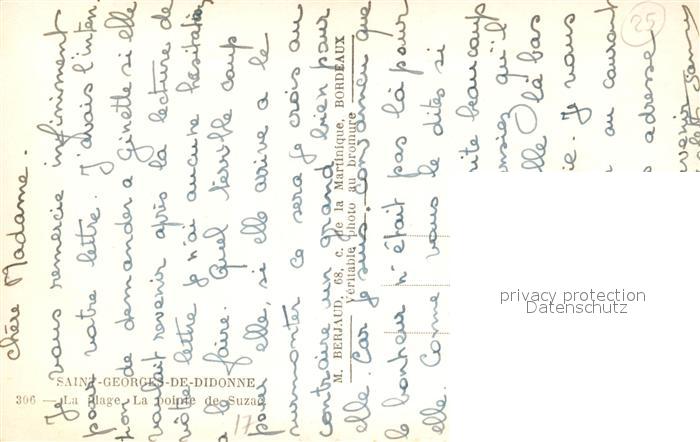 Chère Madame.
Je vous remercie infiniment
pour votre lettre. J'avais l'inten.
tion de demander à Ginette si elle
voulait revenir après la lecture de
vôtre lettre je n'ai aucune hésitation
à le faire. Quel terrible coup
pour elle, si elle arrive a le
surmonter ce sera je crois au
contraire un grand bien pour
elle. Car je suis convaincu que
le bonheur n'était pas là pour
elle. Comme vous le dites si
beaucoup
qu'il
là bas
Je vous
au courant
adresse
SAINT-GEORGES-DE-DIDONNE
306 — La plage. La pointe de Suzac
M. BERJAUD, 68, c. de la Martinique, BORDEAUX
Véritable photo au bromure
25
17
privacy protection
Datenschutz